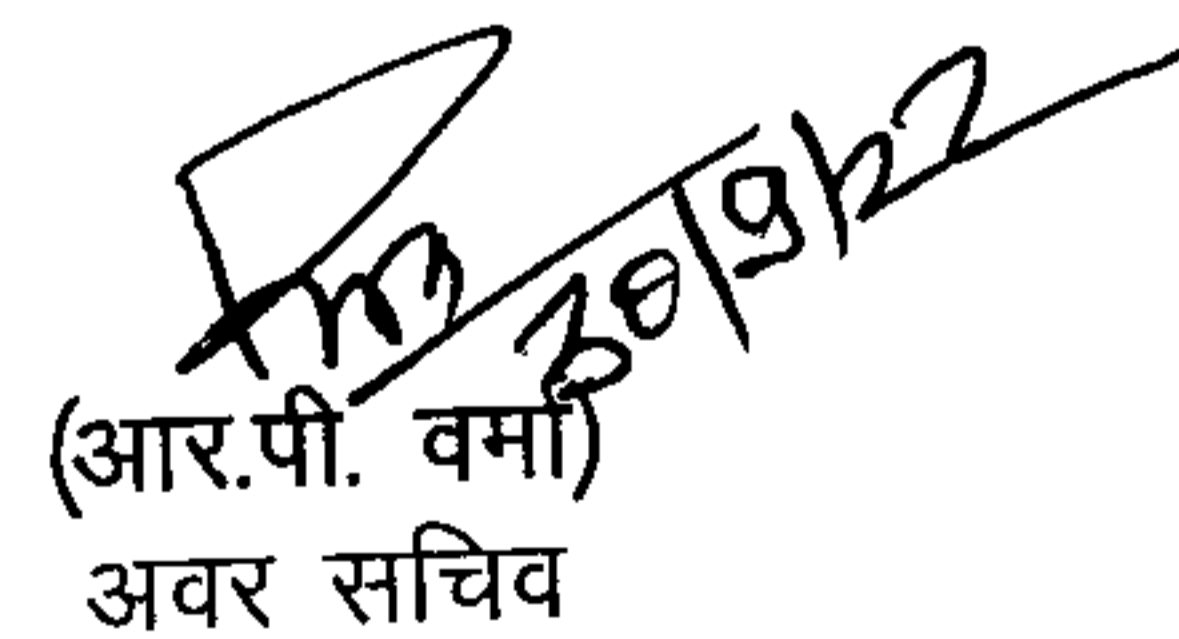 30/9/22
(आर.पी. वर्मा)
अवर सचिव